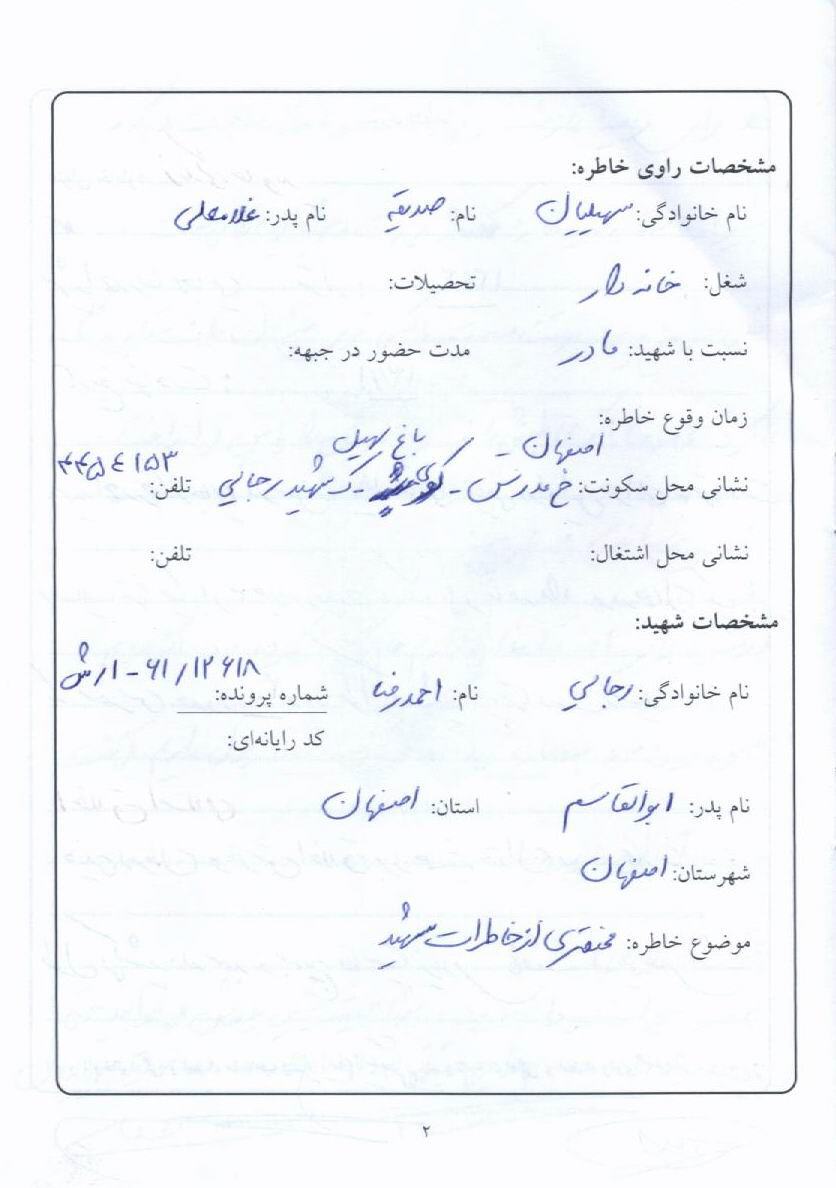 مشخصات راوی خاطره:
نام خانوادگی: سهیلیان نام: صدیقه نام پدر: غلامعلی
شغل: خانه دار تحصیلات:
نسبت با شهید: مادر مدت حضور در جبهه:
زمان وقوع خاطره:
اصفهان - باغ سهیل
نشانی محل سکونت: خ مدرس - کوی - ک شهید رجایی تلفن: ۴۴۵۴۱۵۳
نشانی محل اشتغال: تلفن:
مشخصات شهید:
۶۱/۱۲۶۱۸ - ارش
نام خانوادگی: رجایی نام: احمدرضا شماره پرونده:
کد رایانه‌ای:
نام پدر: ابوالقاسم استان: اصفهان
شهرستان: اصفهان
موضوع خاطره: مختصری از خاطرات شهید
۲